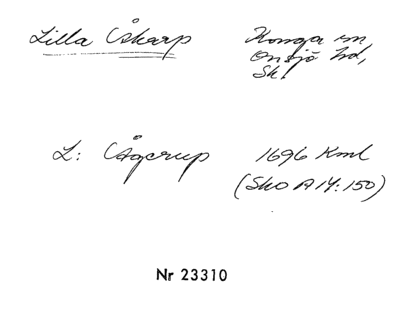 Lilla Åkarp
Konga sn
Onsjö hd,
Sk.
L: Ågerup
1696 Kml
(Sko A 14:150)
Nr 23310